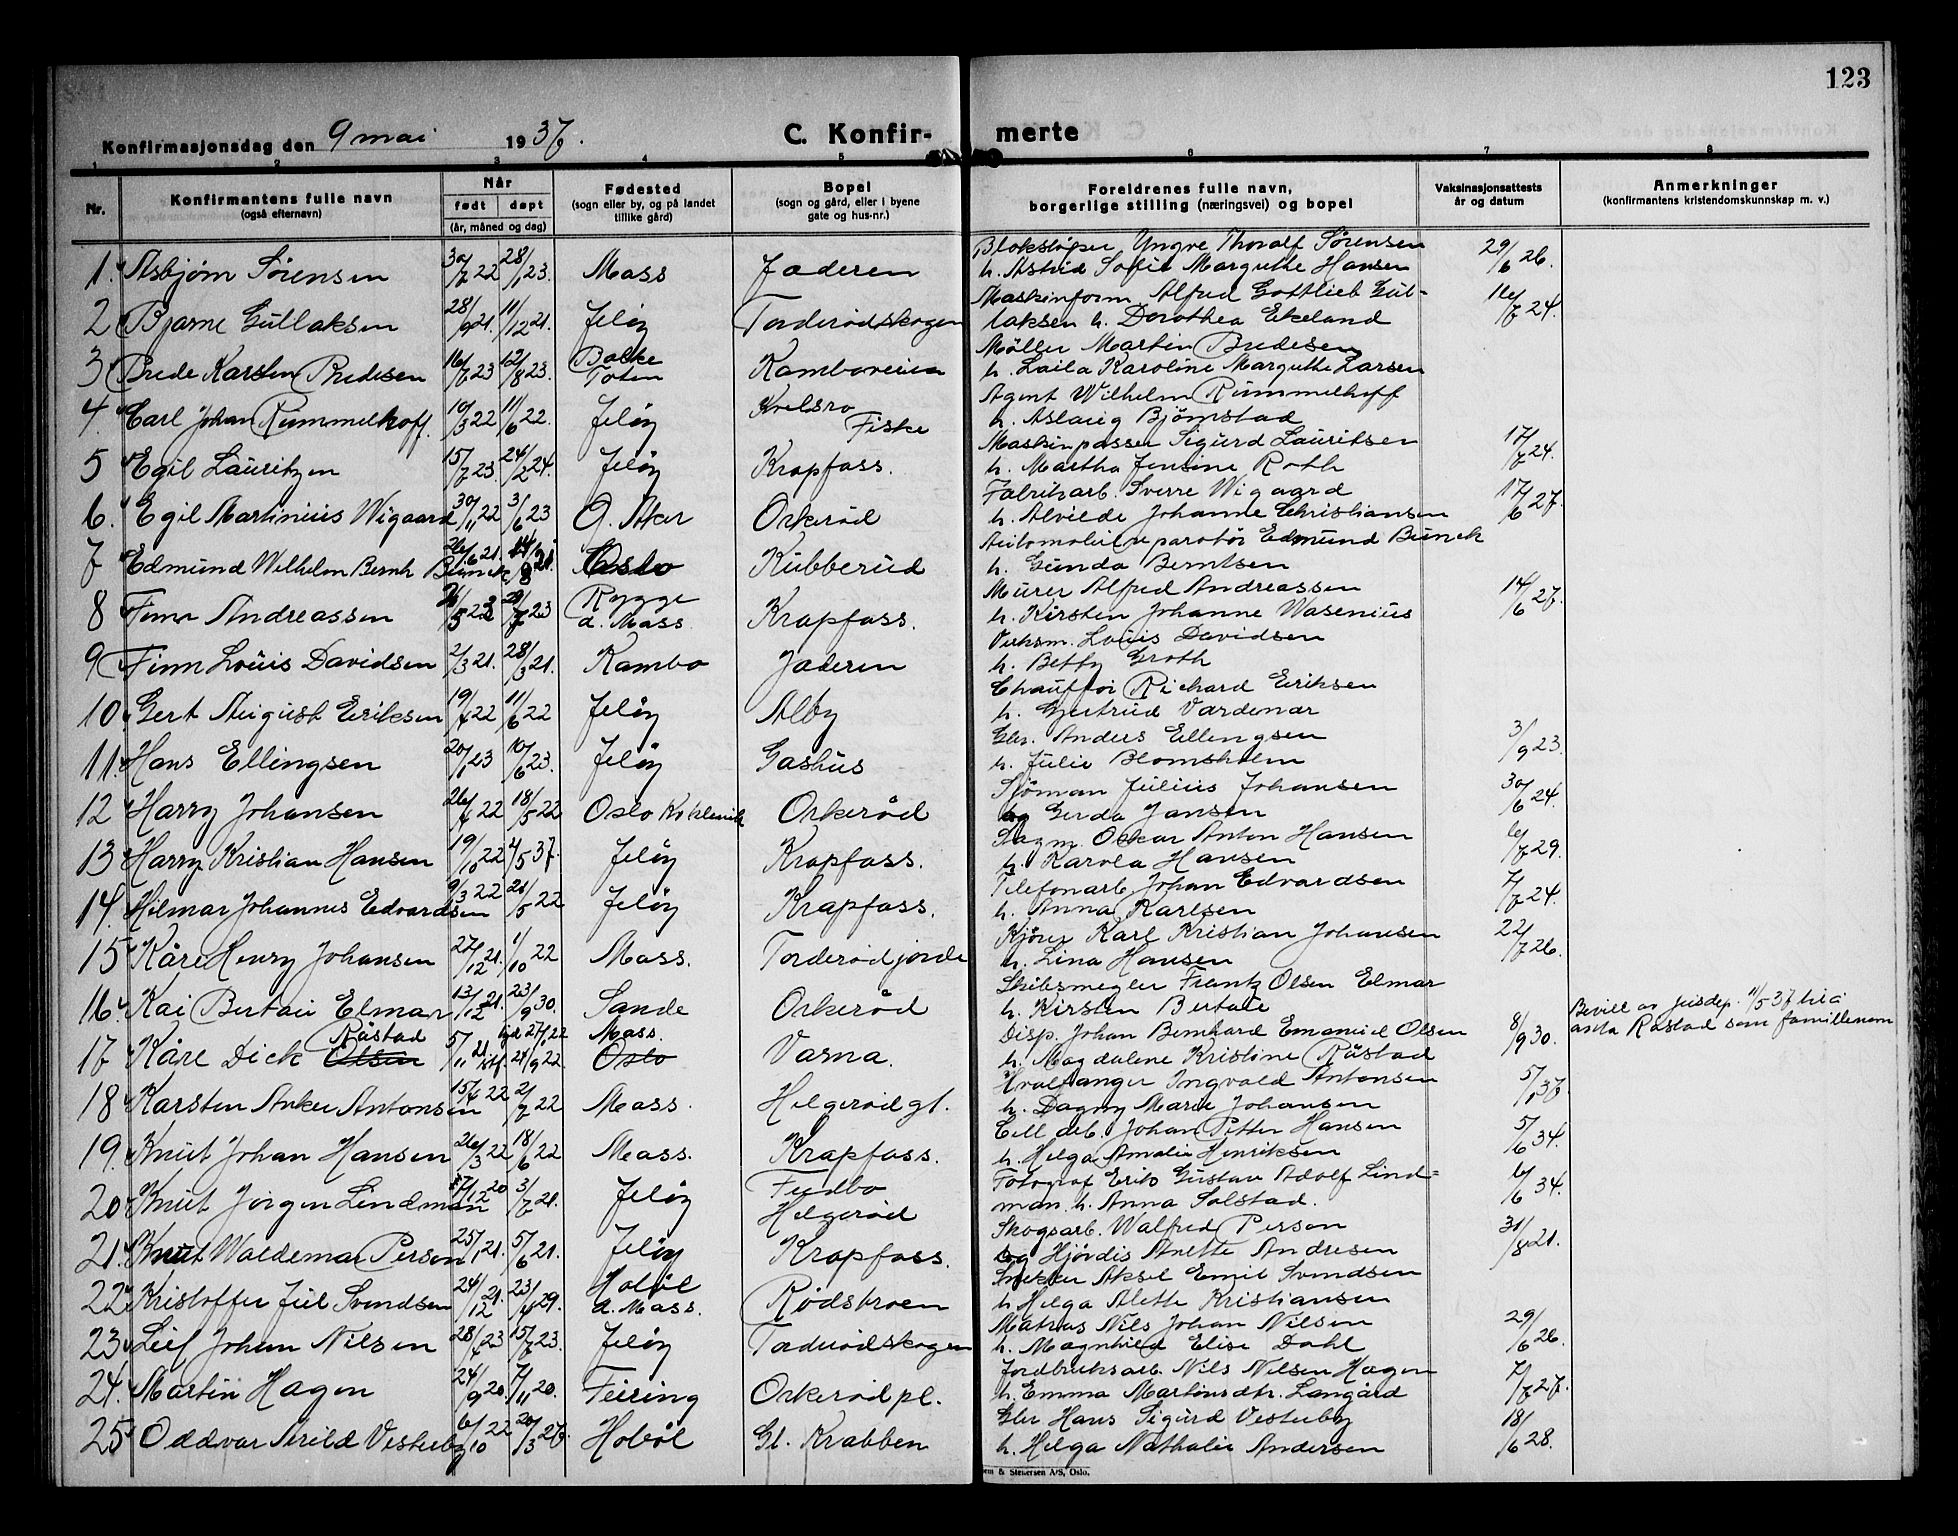 123
Konfirmasjonsdag den 9 mai 1937.
C. Konfir-merte
1 2 3 4 5 6 7 8
Nr.
Konfirmantens fulle navn
(også efternavn)
Når
født døpt
(år, måned og dag)
Fødested
(sogn eller by, og på landet
tillike gård)
Bopel
(sogn og gård, eller i byene
gate og hus-nr.)
Foreldrenes fulle navn,
borgerlige stilling (næringsvei) og bopel
Vaksinasjonsattests
år og datum
Anmerkninger
(konfirmantens kristendomskunnskap m. v.)
1. Asbjørn Sørensen 30/7 22 28/1 23. Moss Jaderen
Yngve Thoralf Sørensen
h. Astrid Sofie Margrethe Hansen 29/6 26.
2 Bjarne Gullaksen 28/9 21. 11/12 21. Jeløy Torderødskogen
Maskinform Alfred Gottlieb Gul-
laksen h. Dorothea Ekeland 16/7 24.
3 Brede Karsten Bredesen 16/7 23 12/8 23. Balke Toten Kamboveien
Møller Martin Bredesen
h. Laila Karoline Margrethe Larsen
4. Carl Johan Rummelhoff. 10/3 22 11/6 22. Jeløy Fiske
Agent Wilhelm Rummelhoff
h. Aslaug Bjørnstad
5 Egil Lauritzen 15/7 23. 24/2 24. Jeløy Krapfoss.
Maskinpasser Sigurd Lauritsen
h. Martha Jensine Roth 17/7 24.
6. Egil Martinius Wigaard 30/11 22 3/6 23 Ø. Aker Orkerød
Fabrikarb. Sverre Wigaard
h. Alvilde Johanne Christiansen 17/6 27.
7 Edmund Wilhelm Bernh Bunck 26/6 21. 14/8 21. Oslo Kubberud
Automobilreparatør Edmund Bunck
h. Gunda Berntsen
8 Finn Andreassen 23 29/7 23 Rygge d. Moss Krapfoss.
Murer Alfred Andreassen
h. Kirsten Johanne Wasenius 14/6 27.
9 Finn Louis Davidsen 2/3 21. 28/3 21. Kambo Jaderen
Verksm. Louis Davidsen
h. Betty Groth
10. Gert August Eriksen 19/4 22 11/6 22 Jeløy Alby
Chauffør Richard Eriksen
h. Gjertrud Vardenær
11. Hans Ellingsen 20/1 23 10/6 23. Jeløy Gashus
Gbr. Anders Ellingsen
h. Julie Blomsholm 3/9 23.
12 Harry Johansen 26/4 22 18/5 22 Oslo Orkerød
Sjøman Julius Johansen
og Gerda Jansen 30/6 24.
13 Harry Kristian Hansen 19/10 22 4/5 37. Jeløy Krapfoss.
Sagm. Oskar Anton Hansen
h. Karola Hansen 6/7 29.
14. Hilmar Johannes Edvardsen 9/3 22 21/5 22 Jeløy Krapfoss.
Telefonarb. Johan Edvardsen
h. Anna Karlsen 7/7 24.
15 Kåre Henry Johansen 27/12 21. 1/10 22 Moss. Torderødjorde
Kjører Karl Kristian Johansen
h. Lina Hansen 22/7 26.
16. Kai Bertau Elmar 13/12 21. 23/9 30. Sande Orkerød
Skibsmegler Frantz Olsen Elmar
h. Kirsten Bertau
17 Kåre Dick Olsen Råstad 5/11 21 hjd. 27/1 22 stf. 24/9 22. Moss. Oslo Varna.
Disp. Johan Bernhard Emanuel Olsen
h. Magdalene Kristine Råstad 8/9 30.
Bevill av Jusdep. 11/5 37 til å
anta Råstad som familienavn
18 Karsten Anker Antonsen 15/4 22 2/7 22 Moss. Helgerød gt.
Hvalfanger Ingvald Antonsen
h. Dagny Marie Johansen 5/1 37.
19. Knut Johan Hansen 26/3 22 18/6 22 Moss. Krapfoss.
Cell. arb. Johan Petter Hansen
h. Helga Amalie Henriksen 5/6 34.
20 Knut Jørgen Lindman 17/12 20 3/7 21. Jeløy Helgerød
Fotograf Erik Gustav Adolf Lind-
man. h. Anna Solstad. 6/6 34.
21. Knut Waldemar Person 25/1 21. 5/6 21. Jeløy Krapfoss.
Skogsarb. Walfred Person
og Hjørdis Anette Andresen 31/8 21.
22 Kristoffer Juel Svendsen 24/12 21. 23/4 29. Hobøl d. Moss. Rødskroen
Snekker Aksel Emil Svendsen
h. Helga Alette Kristiansen
23 Leif Johan Nilsen 28/4 23 15/7 23. Jeløy Torderødskogen
Matros Nils Johan Nilsen
h. Magnhild Elise Dahl 29/6 26.
24. Martin Hagen 24/9 20. 7/11 20. Feiring Orkerød pl.
Jordbruksarb. Nils Nilsen Hagen
h. Emma Martinsdtr. Langård 7/7 27.
25 Oddvar Arild Vesterby 6/10 22 20/3 27. Hobøl Gl. Krabben
Gbr Hans Sigurd Vesterby
h. Helga Nathalie Andersen 18/6 28.
& Stenersen A/S, Oslo.